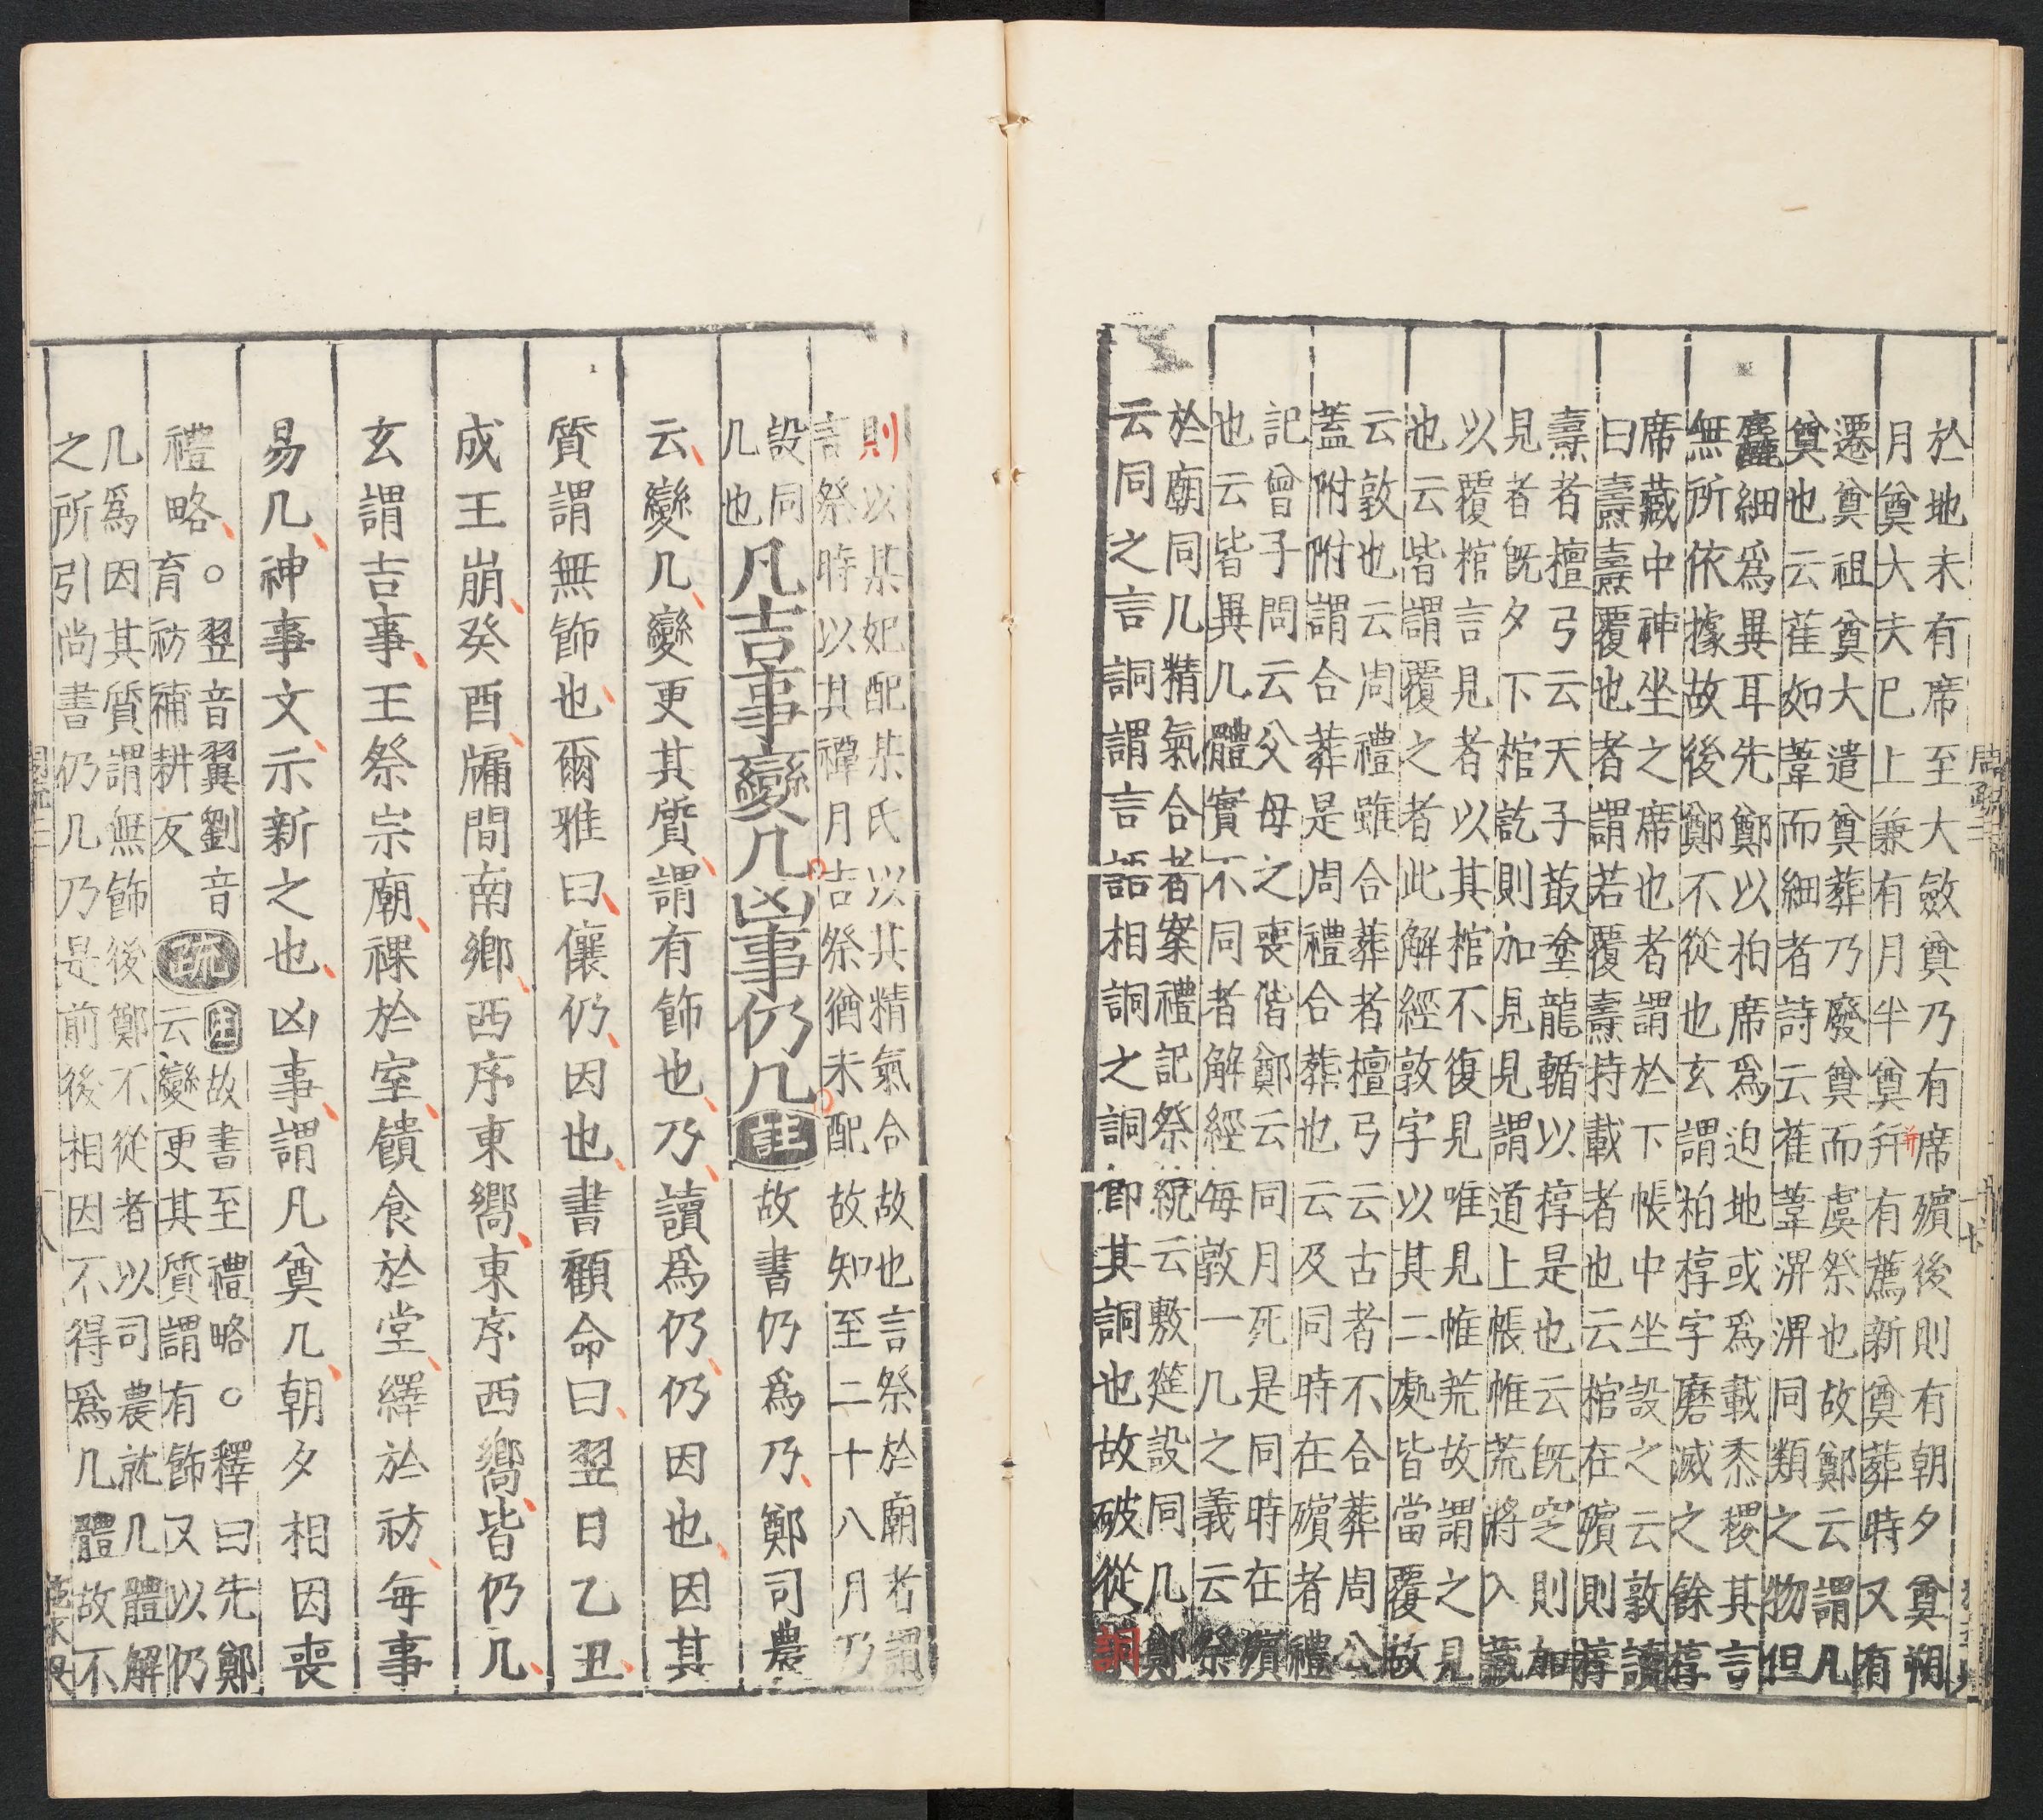 於地未有席至大斂奠乃有席殯後則有朝夕奠朔
月奠大夫已上兼有月半奠并有薦新奠葬時又有
遷奠祖奠大遣奠葬乃廢奠而虞祭也故鄭云謂凡
奠也云萑如葦而細者詩云萑葦淠淠同類之物但
麤細爲異耳先鄭以柏席爲迫地或爲載黍稷其言
無所依據故後鄭不從也玄謂柏椁字磨滅之餘椁
席藏中神坐之席也者謂於下帳中坐設之云敦讀
曰燾燾覆也者謂若覆燾持載者也云棺在殯則椁
燾者檀弓云天子菆塗龍輴以椁是也云既窆則加
見者既夕下棺訖則加見見謂道上帳帷荒將入藏
以覆棺言見者以其棺不復見唯見帷荒故謂之見
也云皆謂覆之者此解經敦字以其二處皆當覆故
云敦也云周禮雖合葬者檀弓云古者不合葬周公
蓋附附謂合葬是周禮合葬也云及同時在殯者禮
記曾子問云父母之喪偕鄭云同月死是同時在殯
也云皆異几體實不同者解經每敦一几之義云祭
於廟同几精氣合者案禮記祭統云敷筵設同几鄭
云同之言詷謂言語相詷之詷即其詷也故破從詷
則以某妃配某氏以其精氣合故也言祭於廟者謂
言祭時以其禫月吉祭猶未配故知至二十八月乃
設同
几也
凡吉事變几凶事仍几註故書仍爲乃鄭司農
云變几變更其質謂有飾也乃讀爲仍仍因也因其
質謂無飾也爾雅曰儴仍因也書顧命曰翌日乙丑
成王崩癸酉牖間南鄉西序東嚮東序西嚮皆仍几
玄謂吉事王祭宗廟祼於室饋食於堂繹於祊每事
易几神事文示新之也凶事謂凡奠几朝夕相因喪
禮略○翌音翼劉音
育祊補耕反
疏註故書至禮略○釋曰先鄭
云變更其質謂有飾又以仍
几爲因其質謂無飾後鄭不從者以司農就几體解
之所引尚書仍几乃是前後相因不得爲几體故不